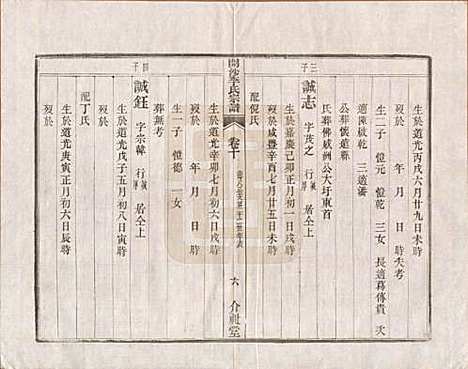 生於道光丙戌六月廿九日未時
歿於　年　月　日　時失考
生二子　愷元　愷乾　三女　長適葛傳貴　次
適陳啟乾　三適潘
公葬儀莲縣
氏葬佛感洲公大圩東首
三子
誠志　字茂之　行　居仝上
生於嘉慶己卯正月初一日戌時
歿於咸豐辛酉七月廿五日未時
配倪氏
開沙李氏宗譜
卷十
六　介祉堂
生於道光辛卯七月初六日戌時
歿於　年　月　日　時
生一子　愷德　一女
葬無考
四子
誠鈺　字宗韓　行　居仝上
生於道光戊子五月初八日寅時
歿於
配丁氏
生於道光庚寅正月初六日辰時
歿於